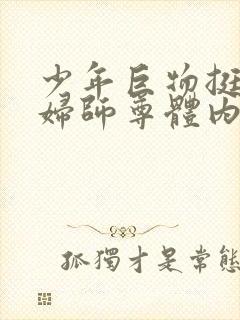 少年巨物挺
婦師尊體内
孤獨才是常態